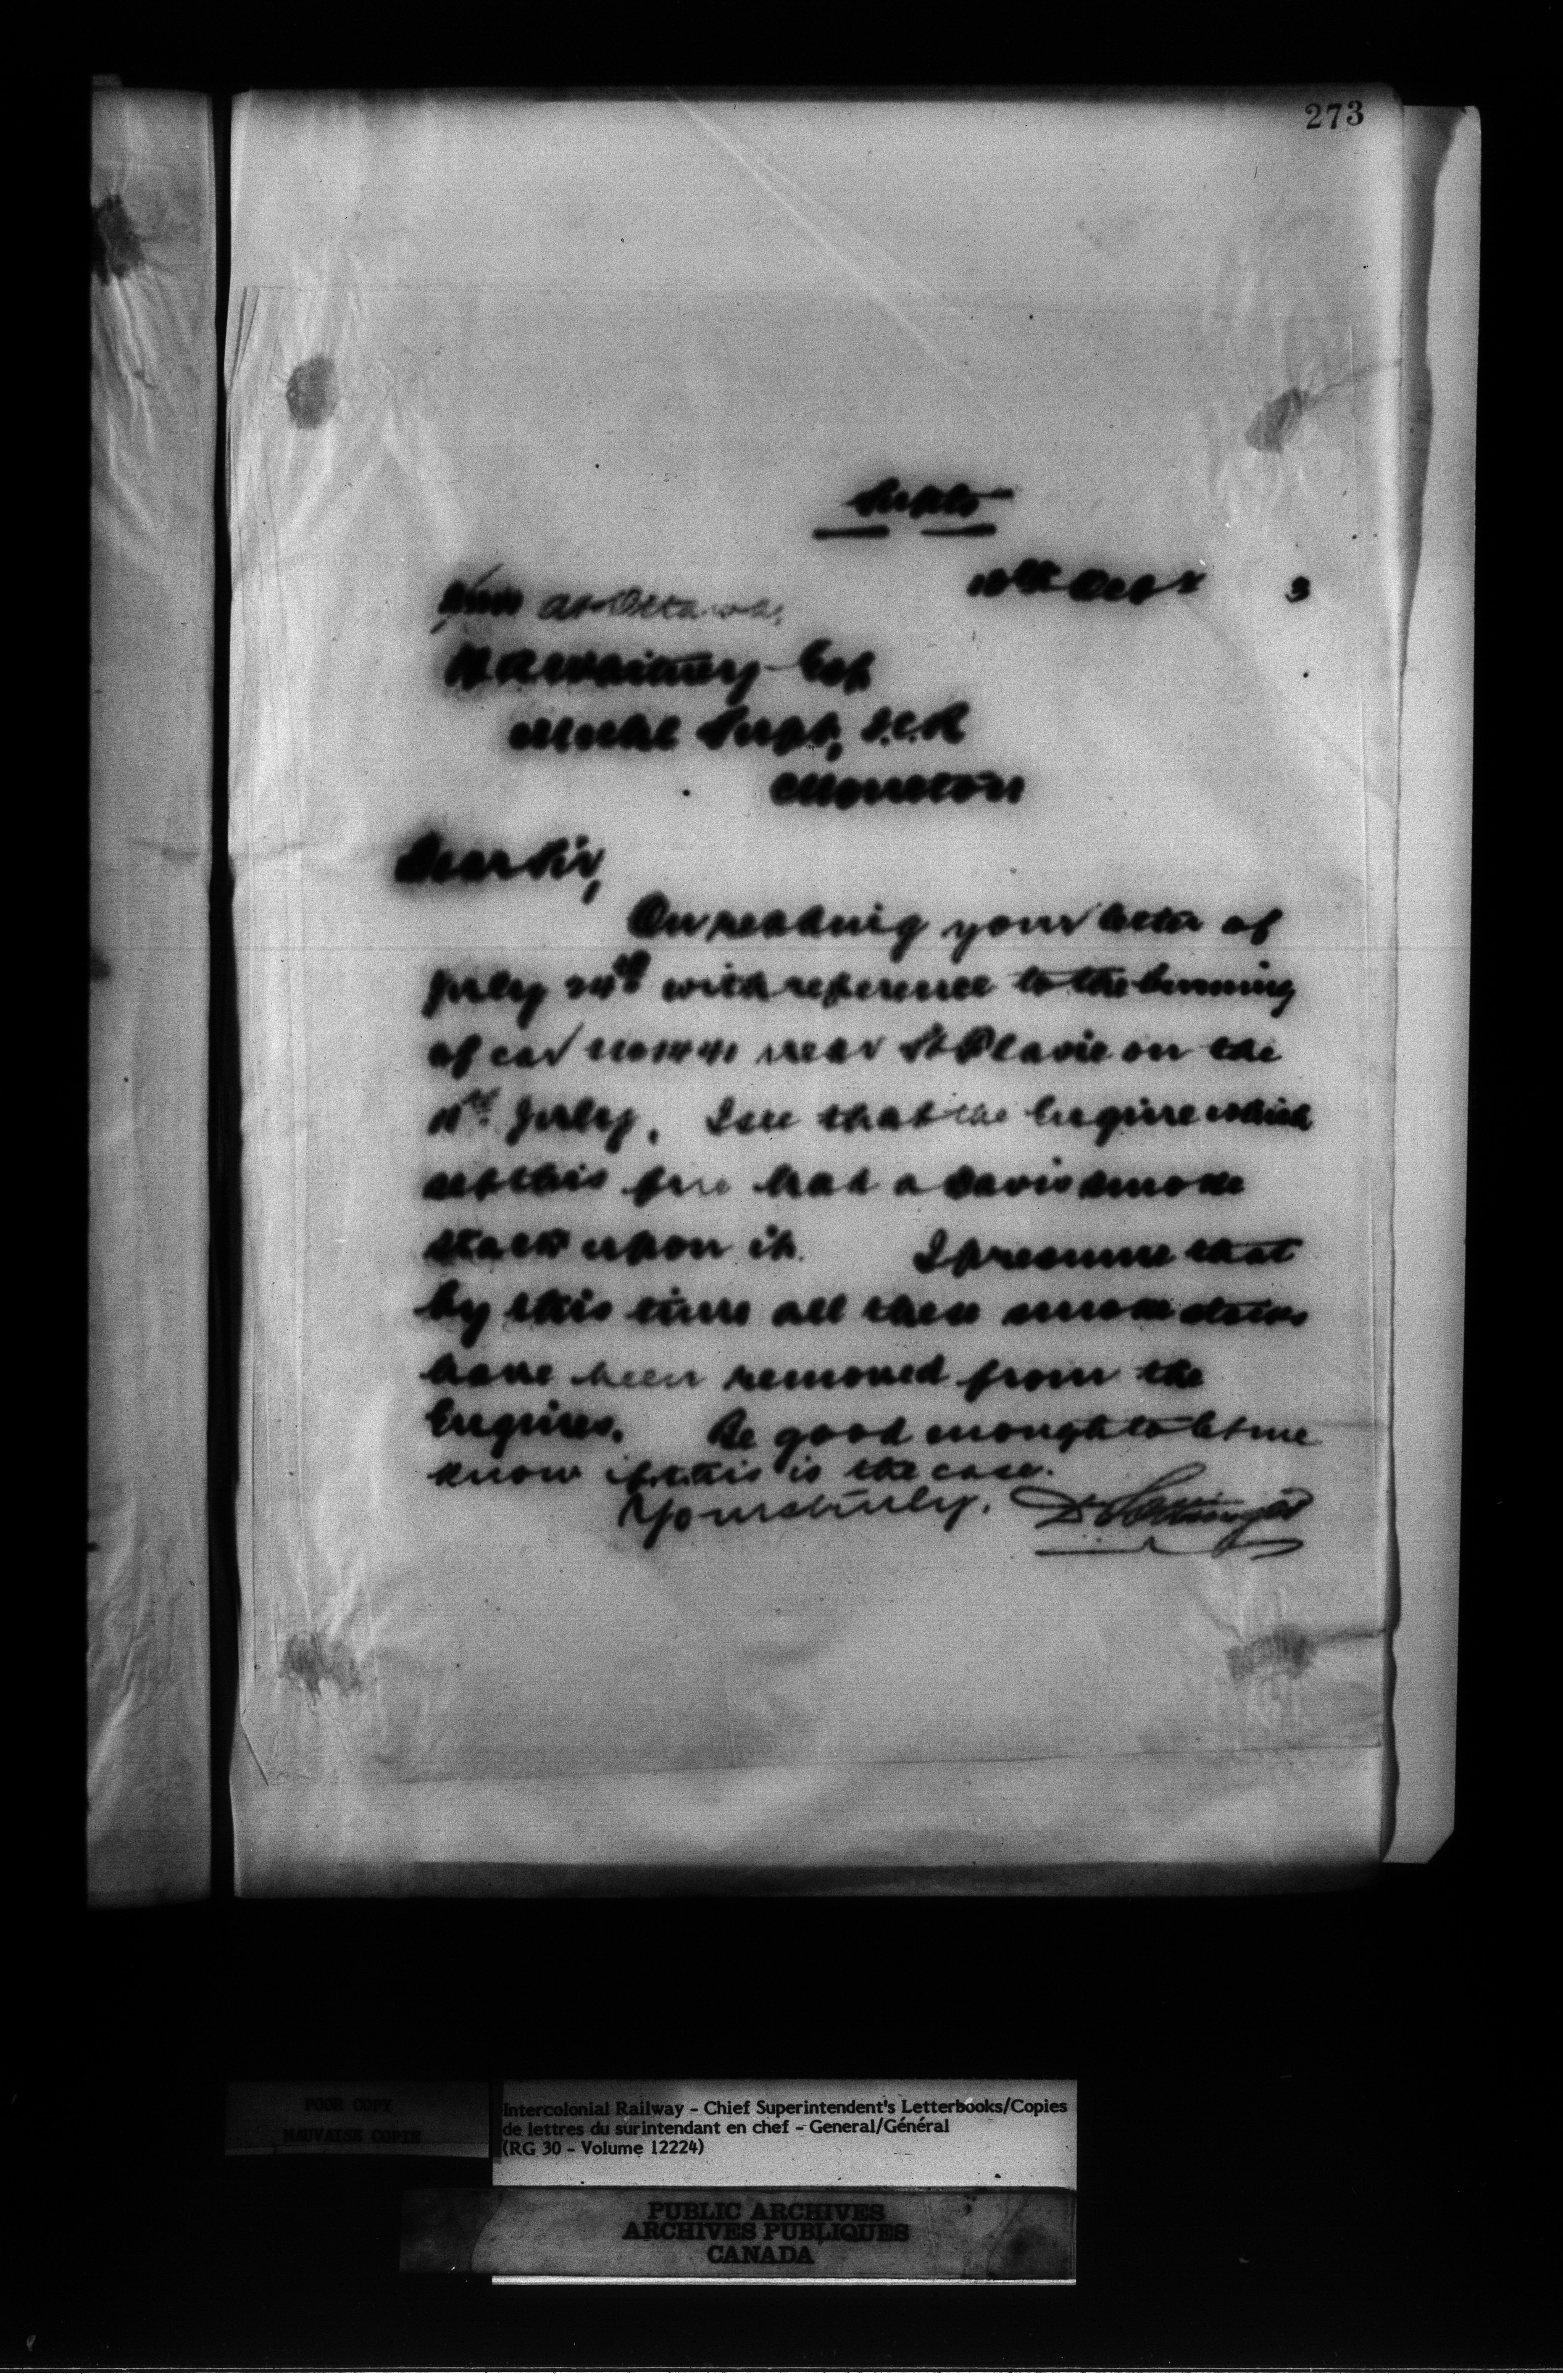 273
Supts
10th Oct 3
Now at Ottawa,
H A Whitney Esq
Mechl Supt, I.C.R
Moncton
Dear Sir,
On reading your letter of
July 24th with reference to the burning
of car near St Flavie on the
11th July, I see that the Engine which
set this fire had a Davis smoke
stack upon it. I presume that
by this time all these smoke stacks
have been removed from the
Engines. Be good enough to let me
know if this is the case.
Yours truly, D Pottinger
POOR COPY
MAUVAISE COPIE
Intercolonial Railway - Chief Superintendent's Letterbooks/Copies
de lettres du surintendant en chef - General/Général
(RG 30 - Volume 12224)
PUBLIC ARCHIVES
ARCHIVES PUBLIQUES
CANADA